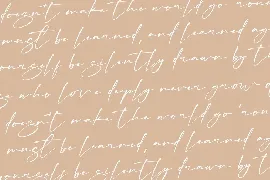 doesn't make the world go roun
must be learned, and learned ag
yourself be silently drawn by t
se who love deeply never grow o
doesn't make the world go roun
must be learned, and learned ag
yourself be silently drawn by t